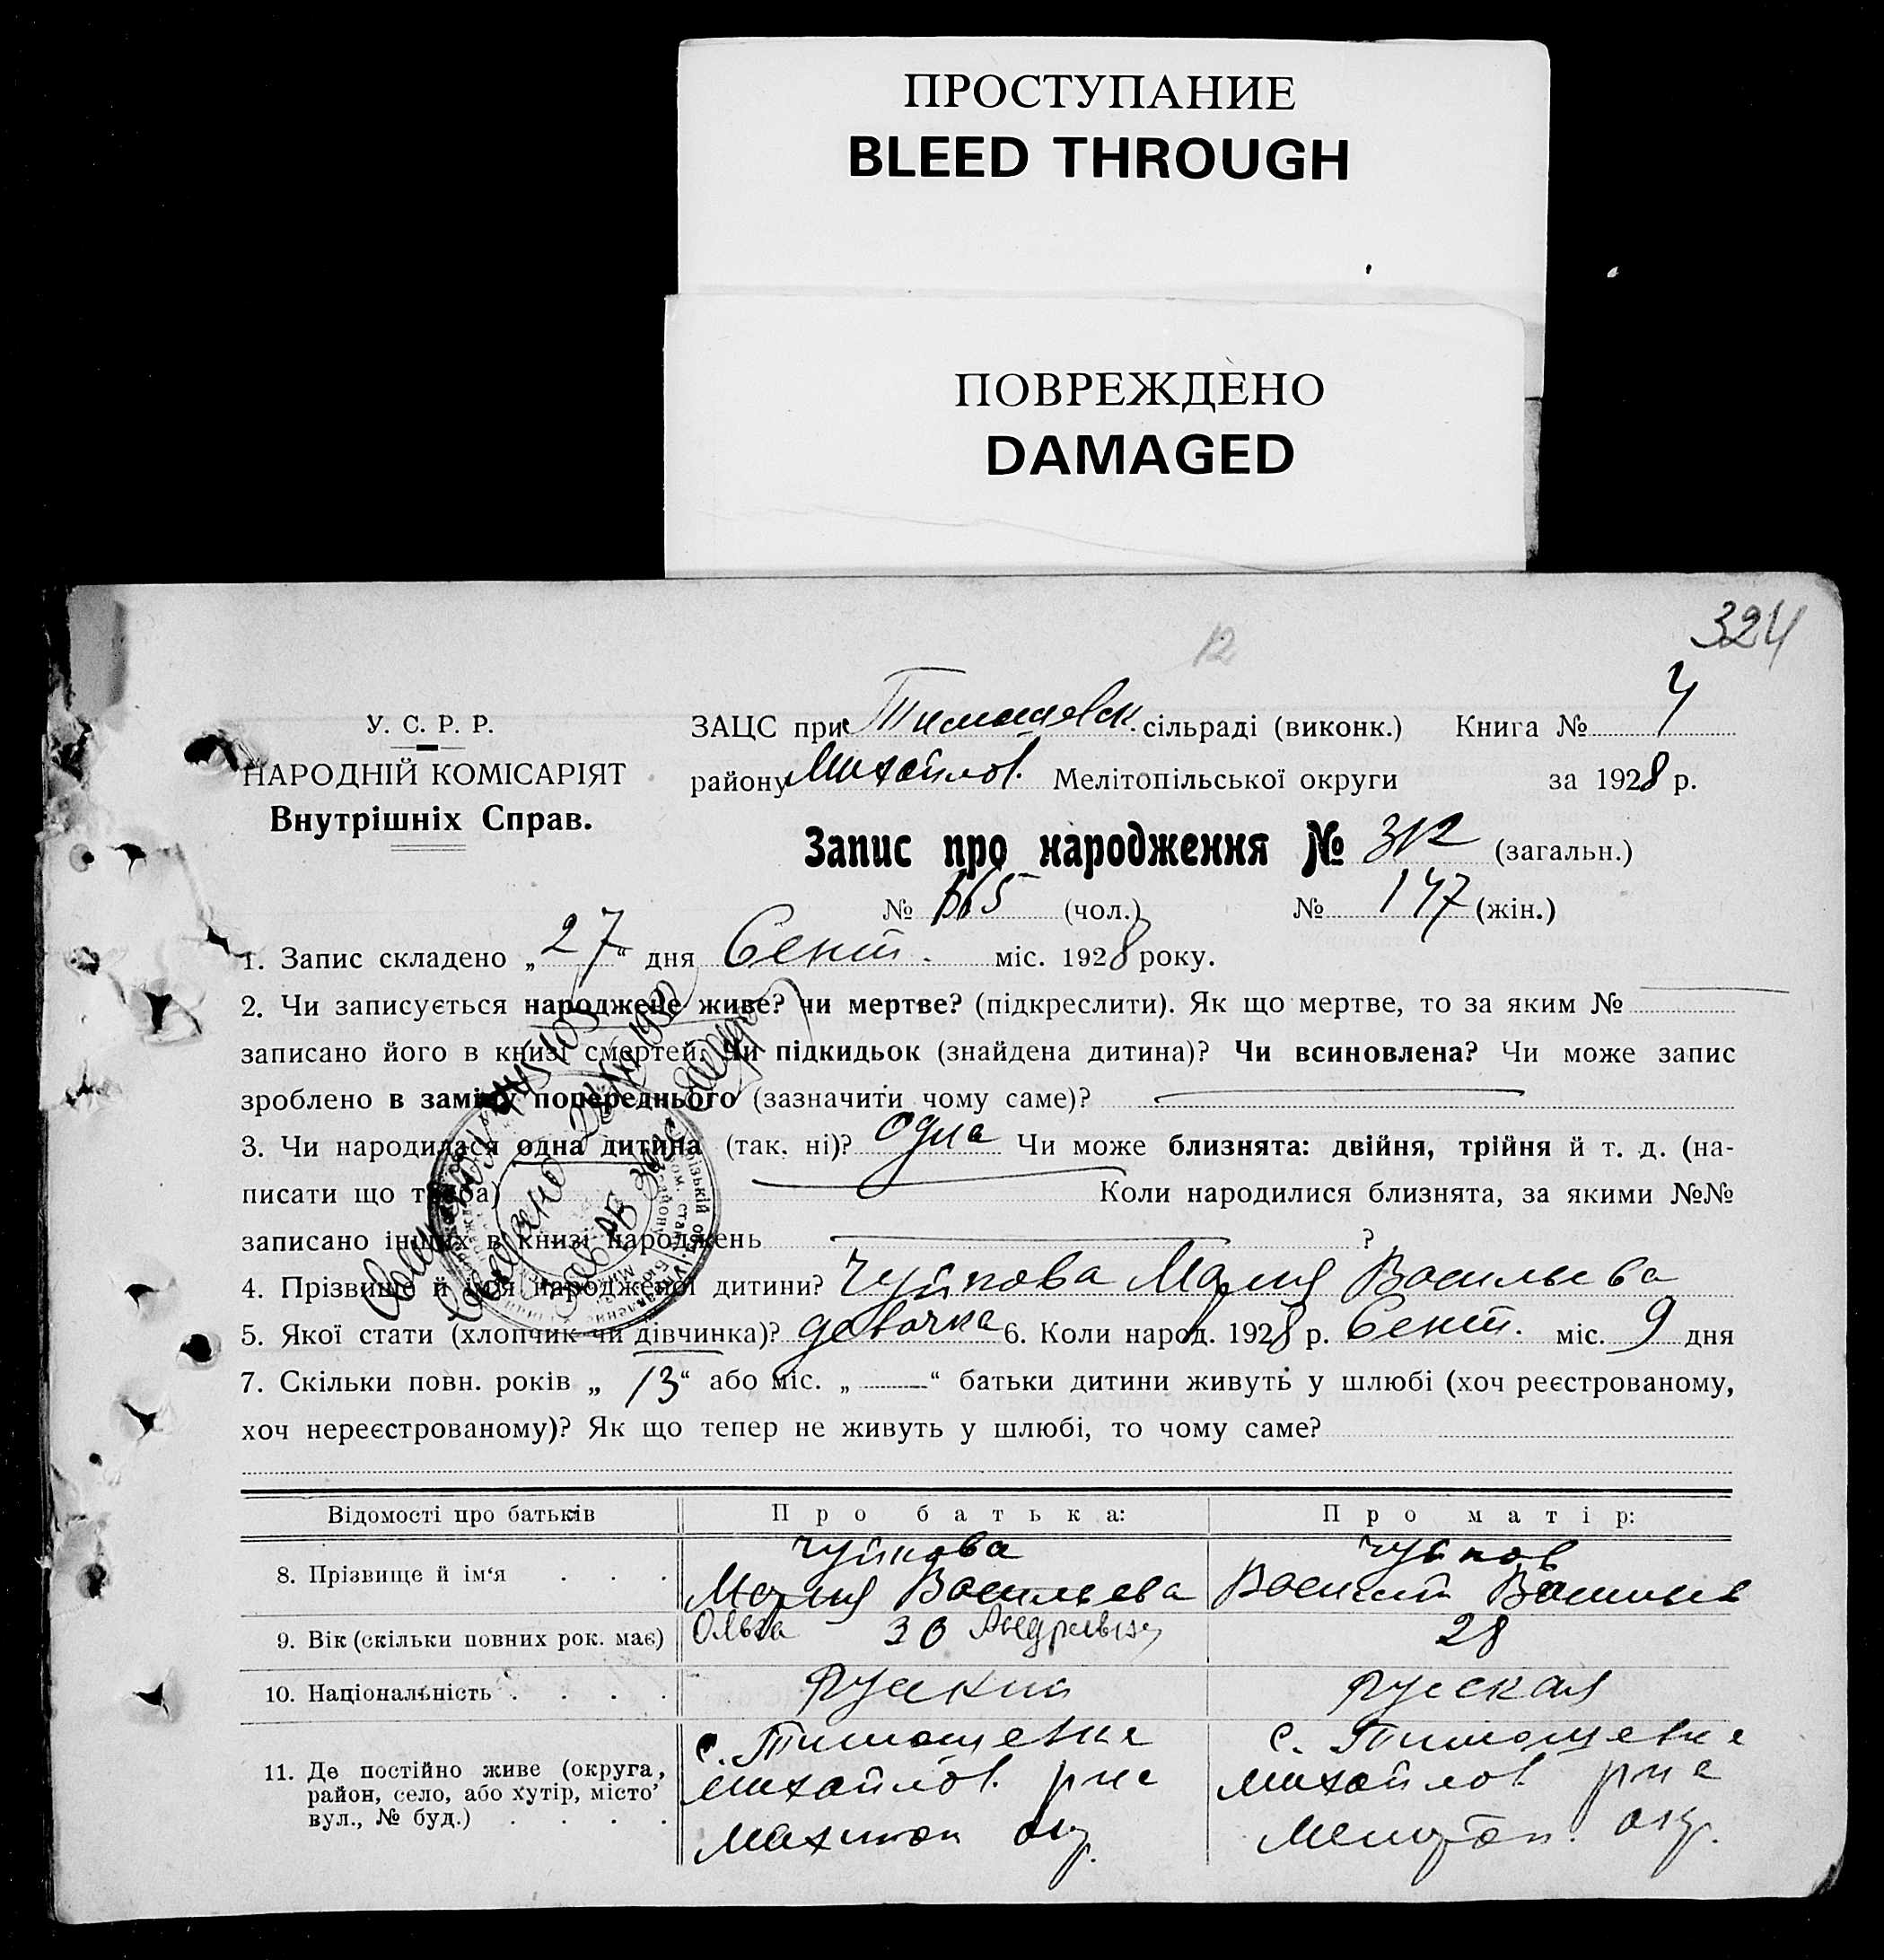 ПРОСТУПАНИЕ
BLEED THROUGH
ПОВРЕЖДЕНО
DAMAGED
324
12
У. С. Р. Р.
НАРОДНІЙ КОМІСАРІЯТ
Внутрішніх Справ.
ЗАЦС при Тимошевск. сільраді (виконк.) Книга № 4
району Михайлов. Мелітопільської округи за 1928 р.
Запис про народження № 312 (загальн.)
№ 165 (чол.) № 147 (жін.)
1. Запис складено „27“ дня Сент. міс. 1928 року.
2. Чи записується народжене живе? чи мертве? (підкреслити). Як що мертве, то за яким №
записано його в книзі смертей. Чи підкидьок (знайдена дитина)? Чи всиновлена? Чи може запис
зроблено в заміну попереднього (зазначити чому саме)?
3. Чи народилася одна дитина (так. ні)? одна Чи може близнята: двійня, трійня й т. д. (на-
писати що треба) Коли народилися близнята, за якими №№
записано інших в книзі народжень ?
4. Прізвище й ім'я народженої дитини? Чуйкова Мария Васильева
5. Якої стати (хлопчик чи дівчинка)? девочка 6. Коли народ. 1928 р. Сент. міс. 9 дня
7. Скільки повн. років „13“ або міс. „ “ батьки дитини живуть у шлюбі (хоч реєстрованому,
хоч нереєстрованому)? Як що тепер не живуть у шлюбі, то чому саме?
Відомості про батьків Про батька: Про матір:
8. Прізвище й ім'я . . . Чуйкова Мария Васильева Чуйков Василий Васильев
9. Вік (скільки повних рок. має) Ольга 30 28
10. Національність . . . . Руский Русская
11. Де постійно живе (округа, с. Тимошевке с. Тимошевке
район, село, або хутір, місто Михайлов. р-не Михайлов р-не
вул., № буд.) . . . . окр. Мелитоп. окр.